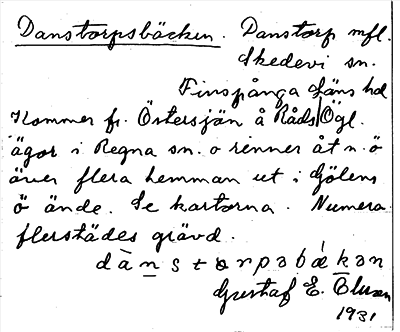 Danstorpsbäcken. Danstorp mfl.
Skedevi sn.
Finspånga läns hd
Kommer fr. Östersjön å Råds Ögl.
ägor i Regna sn. o rinner åt n. ö
över flera hemman ut i Gölens
ö ände. Se kartorna. Numera
flerstädes grävd.
dànstɷrpəbækən
Gustaf E.
1931